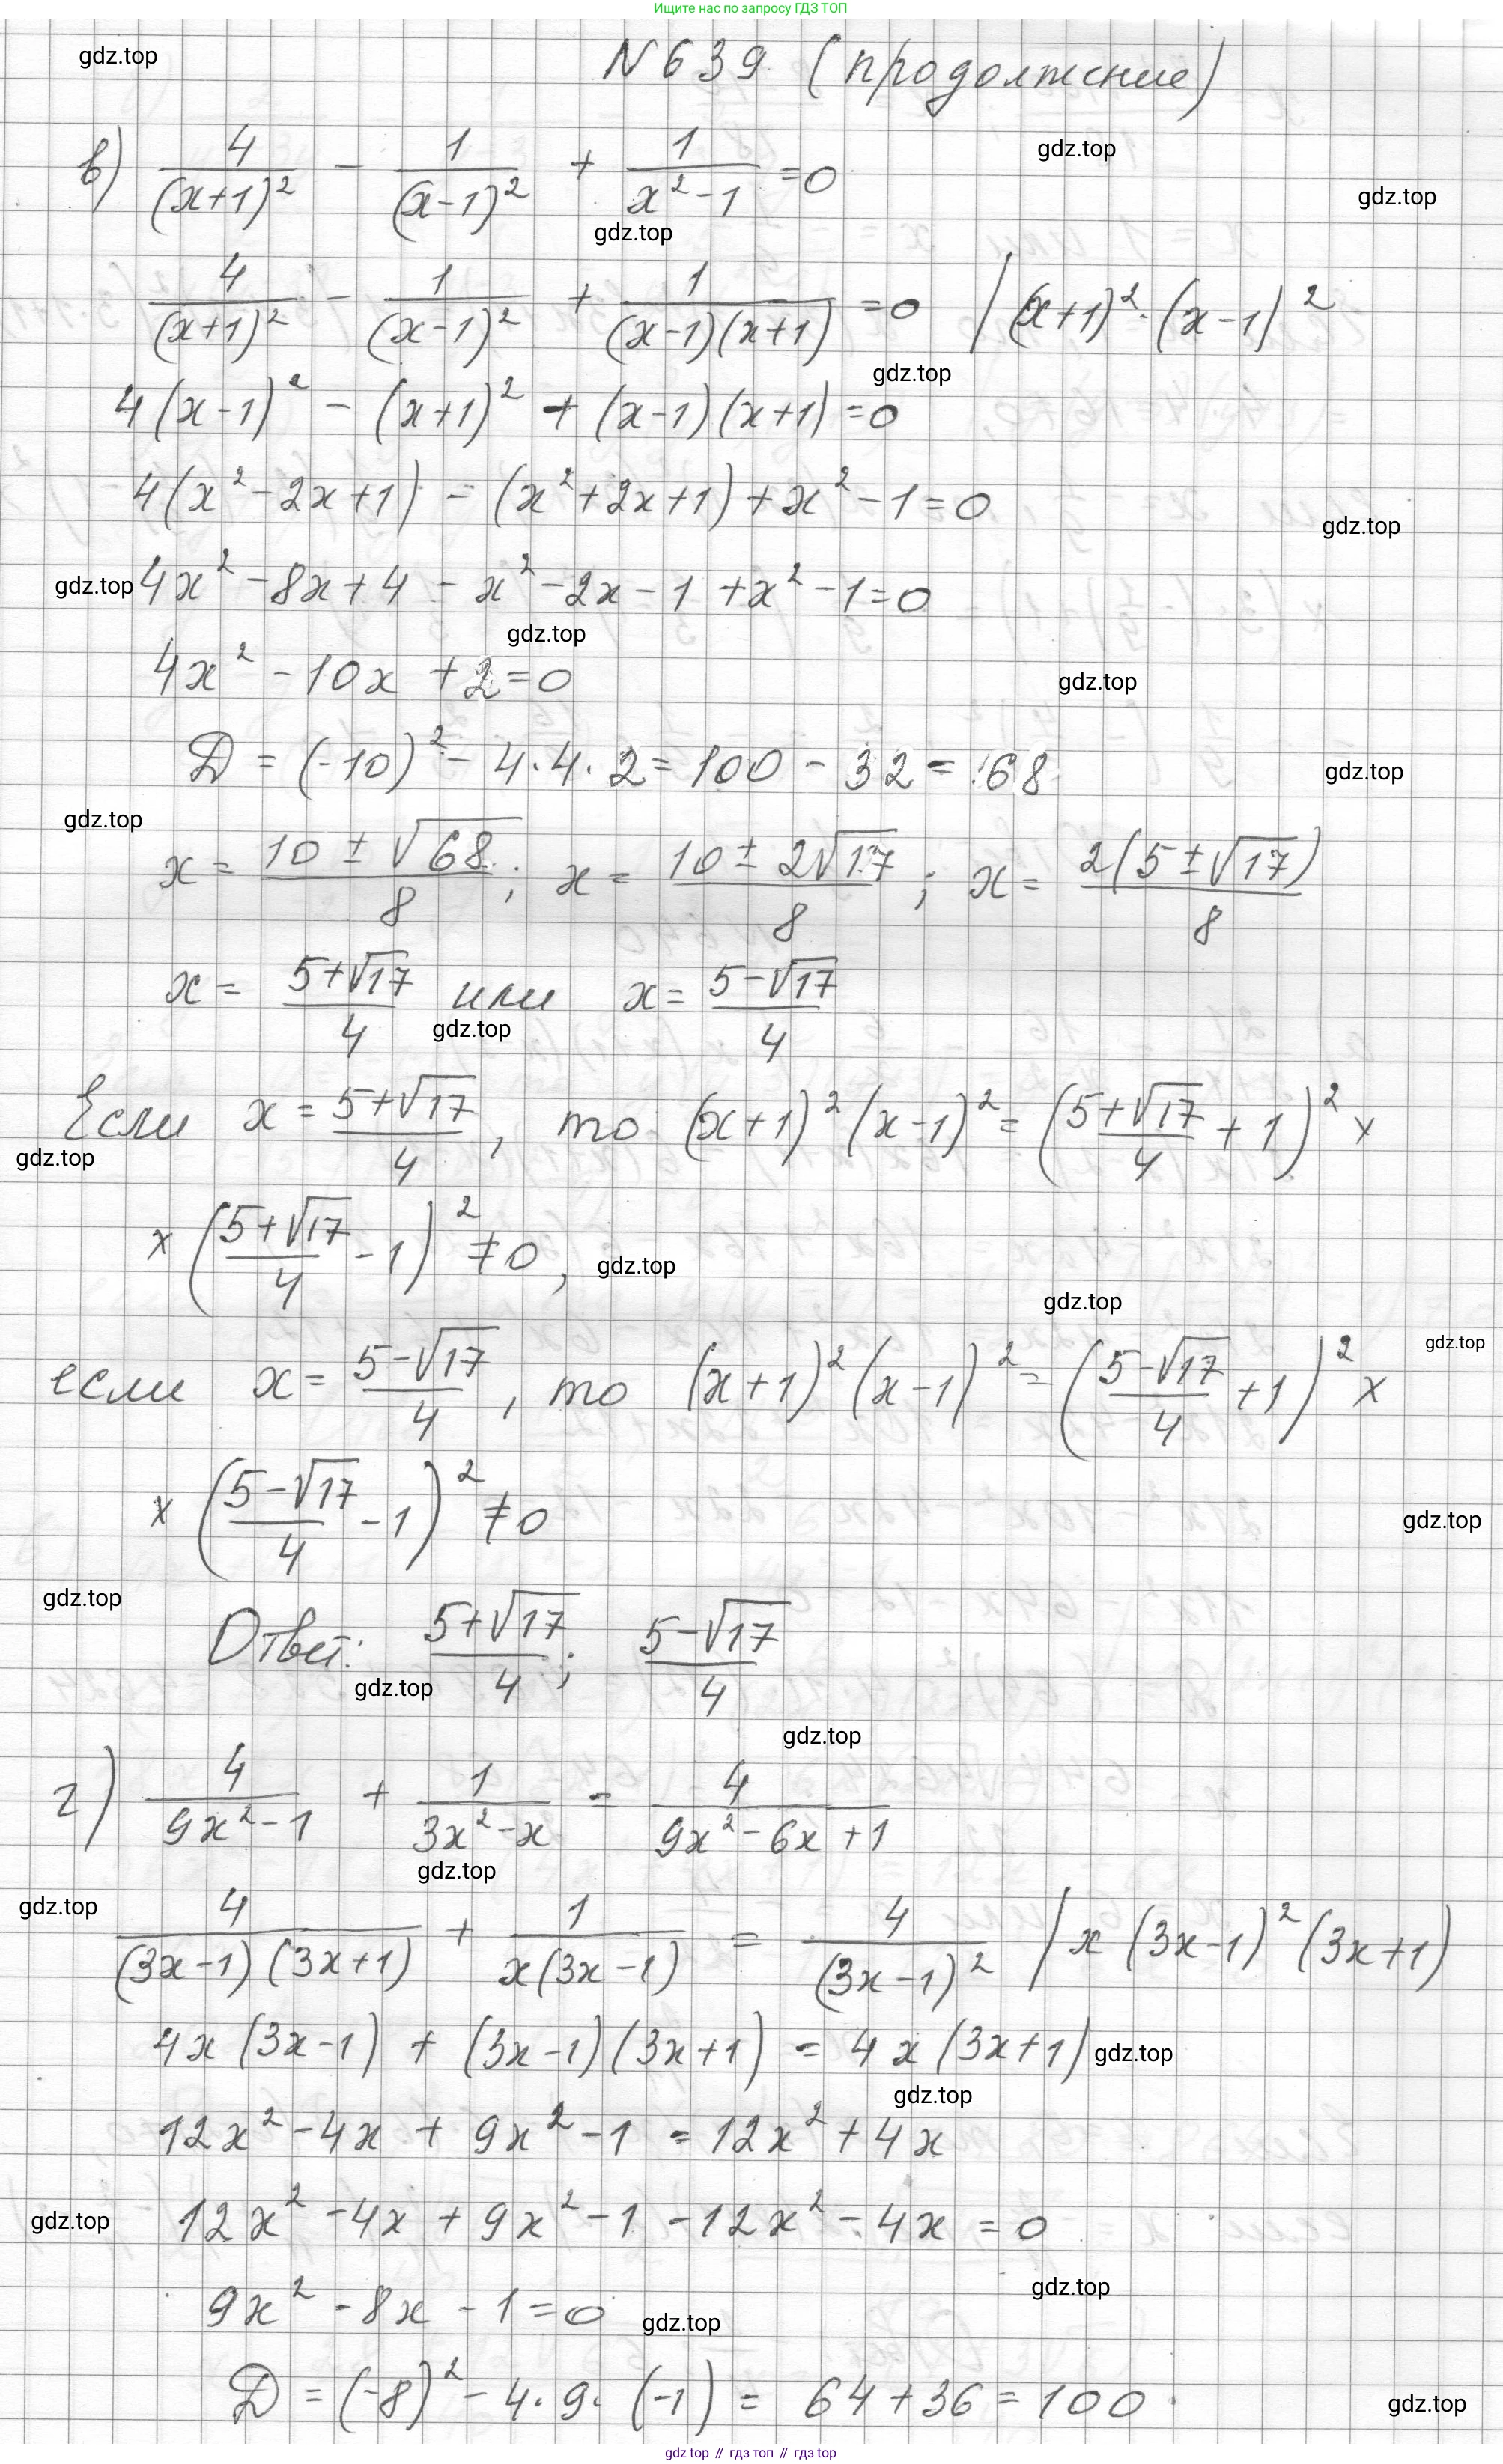 Ищите нас по запросу ГДЗ ТОП
N639 (продолжение)
gdz.top
в) 4/(x+1)² - 1/(x-1)² + 1/(x²-1) = 0
gdz.top
gdz.top
gdz.top
4/(x+1)² - 1/(x-1)² + 1/((x-1)(x+1)) = 0 | (x+1)²·(x-1)²
gdz.top
4(x-1)² - (x+1)² + (x-1)(x+1) = 0
4(x²-2x+1) - (x²+2x+1) + x²-1 = 0
gdz.top
gdz.top 4x²-8x+4 - x²-2x-1 + x²-1 = 0
gdz.top
4x² - 10x + 2 = 0
gdz.top
D = (-10)² - 4·4·2 = 100 - 32 = 68
gdz.top
gdz.top
x = (10 ± √68)/8; x = (10 ± 2√17)/8; x = 2(5 ± √17)/8
x = (5+√17)/4 или x = (5-√17)/4
gdz.top
Если x = (5+√17)/4, то (x+1)²(x-1)² = ((5+√17)/4 + 1)² ×
gdz.top
× ((5+√17)/4 - 1)² ≠ 0,
gdz.top
gdz.top
gdz.top
если x = (5-√17)/4, то (x+1)²(x-1)² = ((5-√17)/4 + 1)² ×
× ((5-√17)/4 - 1)² ≠ 0
gdz.top
gdz.top
Ответ: (5+√17)/4; (5-√17)/4
gdz.top
gdz.top
г) 4/(9x²-1) + 1/(3x²-x) = 4/(9x²-6x+1)
gdz.top
gdz.top
4/((3x-1)(3x+1)) + 1/(x(3x-1)) = 4/(3x-1)² | x(3x-1)²(3x+1)
4x(3x-1) + (3x-1)(3x+1) = 4x(3x+1) gdz.top
gdz.top
12x²-4x + 9x²-1 = 12x²+4x
gdz.top 12x²-4x + 9x²-1 -12x²-4x = 0
gdz.top
9x² - 8x - 1 = 0 gdz.top
D = (-8)² - 4·9·(-1) = 64+36 = 100
gdz.top
gdz top // гдз топ // gdz top